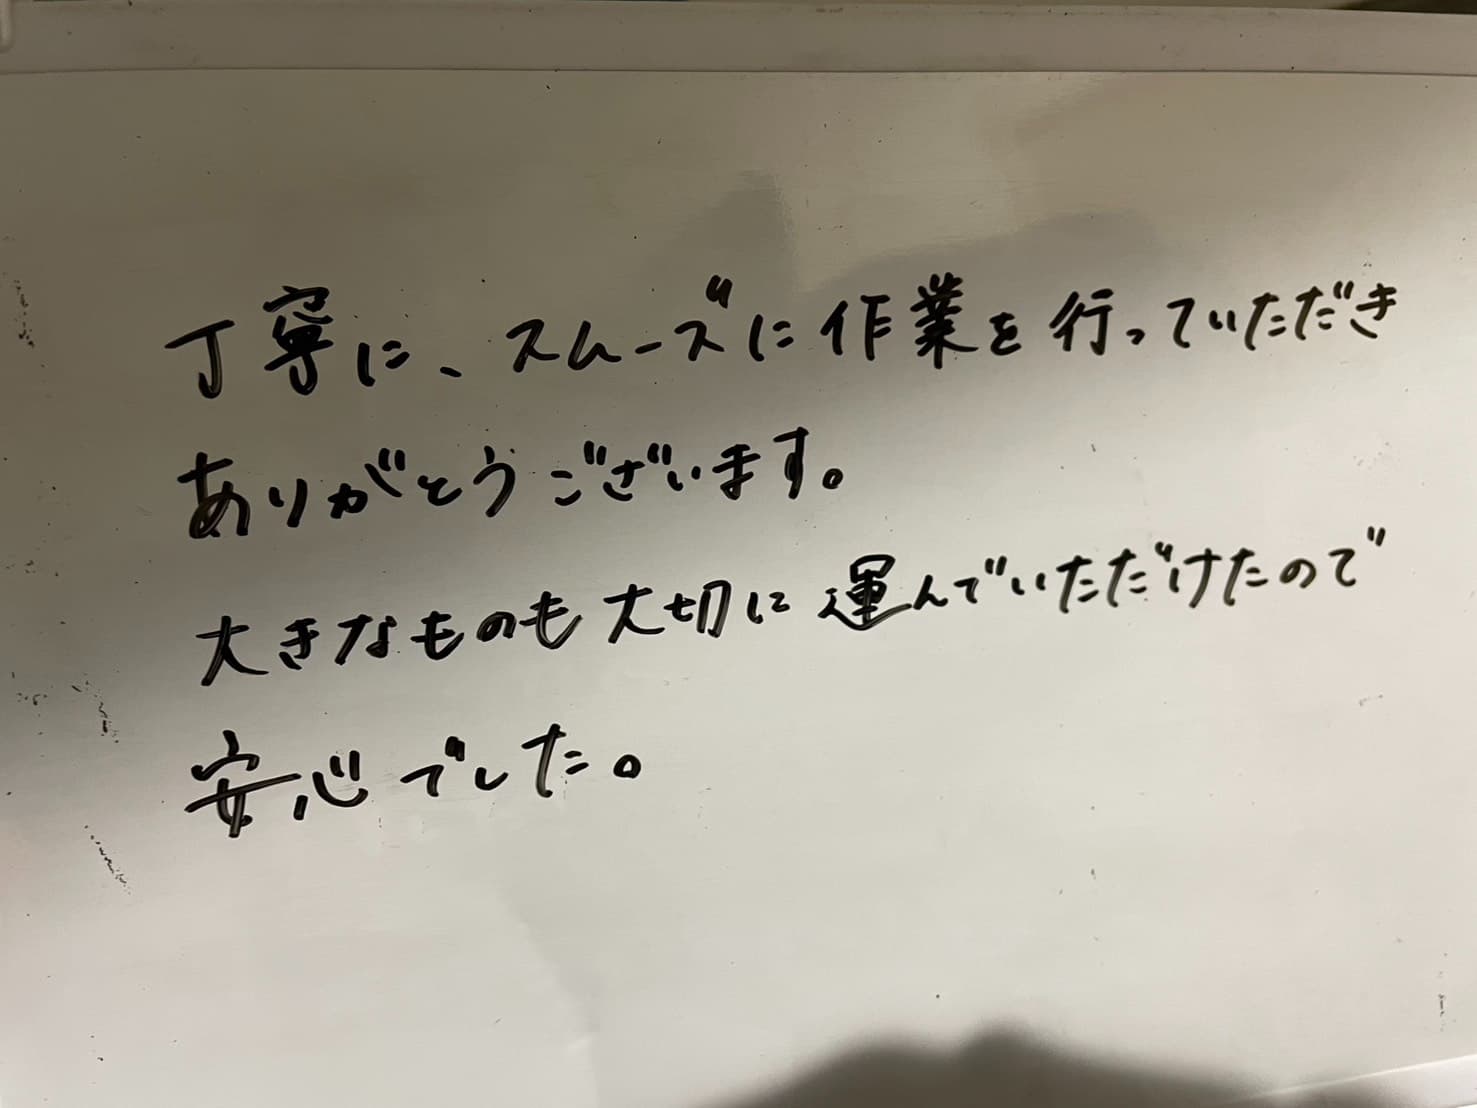 丁寧に、スムーズに作業を行っていただき
ありがとうございます。
大きなものも大切に運んでいただけたので
安心でした。